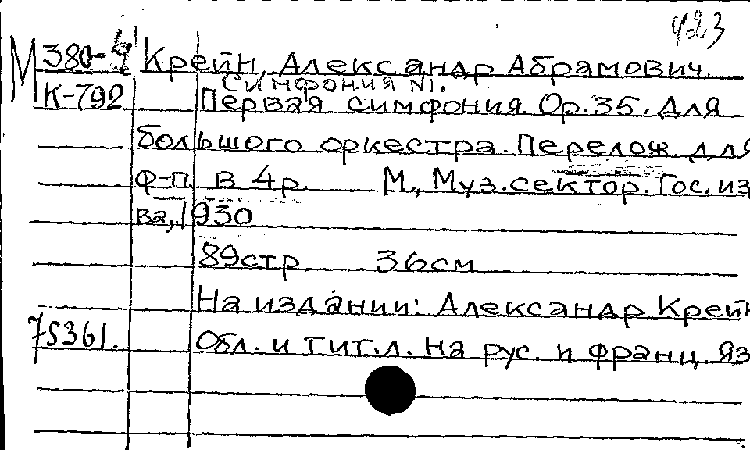 423
М 380-4 Крейн, Александр Абрамович
Симфония №1.
К-792 Первая симфония Ор.35. Для
большого оркестра. Перелож для
ф-п. в 4 р. М., Муз.сектор.Гос.из
ва, 1930
89стр 36см
На издании: Александр Крейн
75361. Обл. и тит.л. на рус. и франц яз